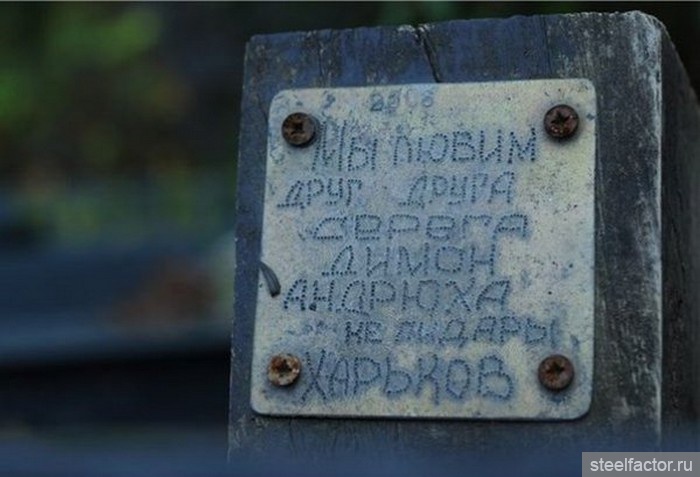 2008
Мы любим
друг друга
Серега
Димон
Андрюха
не пидары
Харьков
steelfactor.ru